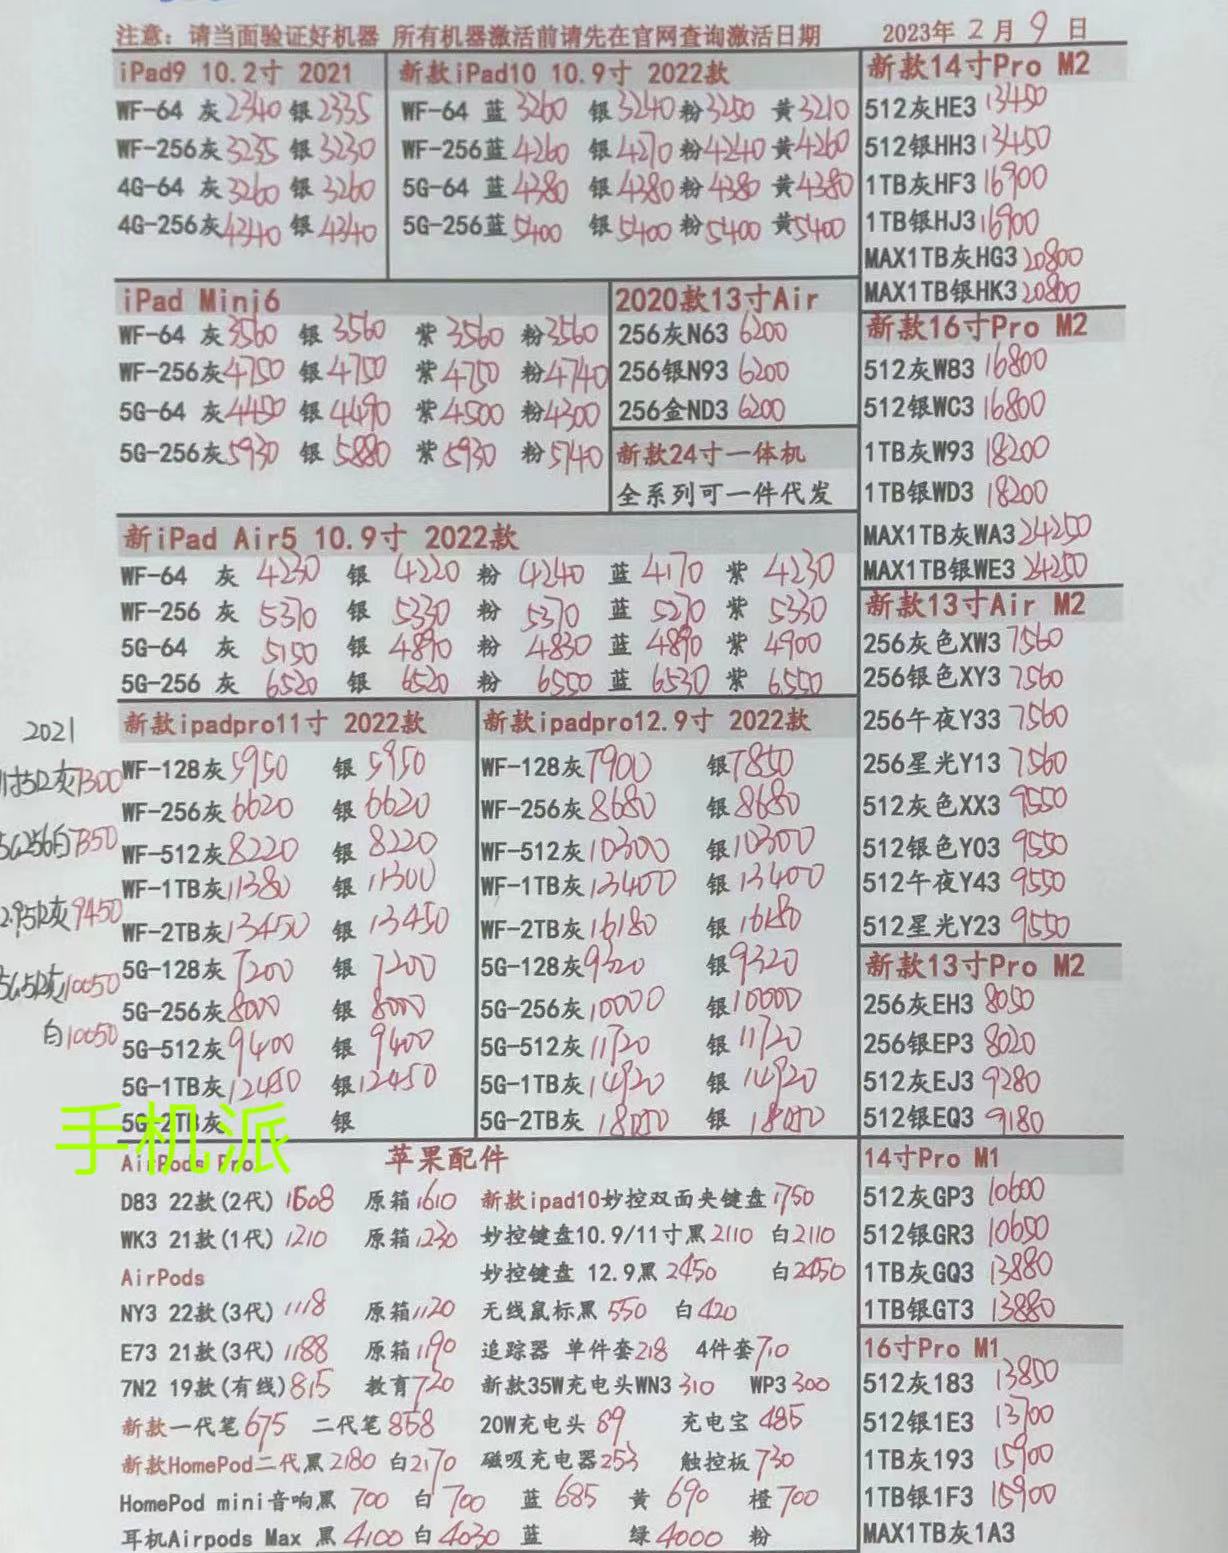 注意：请当面验证好机器 所有机器激活前请先在官网查询激活日期
2023年 2 月 9 日
iPad9 10.2寸 2021
WF-64 灰 2340 银 2335
WF-256灰 3235 银 3230
4G-64 灰 3260 银 3260
4G-256灰 4240 银 4340
新款iPad10 10.9寸 2022款
WF-64 蓝 3260 银 3240 粉 3250 黄 3210
WF-256蓝 4260 银 4270 粉 4240 黄 4260
5G-64 蓝 4380 银 4380 粉 4380 黄 4380
5G-256蓝 5400 银 5400 粉 5400 黄 5400
iPad Mini6
WF-64 灰 3560 银 3560 紫 3560 粉 3560
WF-256灰 4750 银 4750 紫 4750 粉 4740
5G-64 灰 4450 银 4490 紫 4500 粉 4300
5G-256灰 5930 银 5880 紫 5930 粉 5740
2020款13寸Air
256灰N63 6200
256银N93 6200
256金ND3 6200
新款24寸一体机
全系列可一件代发
新iPad Air5 10.9寸 2022款
WF-64 灰 4230 银 4220 粉 4240 蓝 4170 紫 4230
WF-256 灰 5370 银 5330 粉 5370 蓝 5270 紫 5330
5G-64 灰 5150 银 4890 粉 4830 蓝 4890 紫 4900
5G-256 灰 6520 银 6520 粉 6550 蓝 6530 紫 6550
2021
寸512灰 7300
5G256白 7350
2.9512灰 9450
5G512灰 10050
白 10050
新款ipadpro11寸 2022款
WF-128灰 5950 银 5950
WF-256灰 6620 银 6620
WF-512灰 8220 银 8220
WF-1TB灰 11380 银 11300
WF-2TB灰 13450 银 13450
5G-128灰 7200 银 7200
5G-256灰 8000 银 8000
5G-512灰 9400 银 9400
5G-1TB灰 12450 银 12450
5G-2TB灰 银
新款ipadpro12.9寸 2022款
WF-128灰 7900 银 7850
WF-256灰 8680 银 8680
WF-512灰 10300 银 10300
WF-1TB灰 13400 银 13400
WF-2TB灰 16180 银 16180
5G-128灰 9320 银 9320
5G-256灰 10000 银 10000
5G-512灰 11720 银 11720
5G-1TB灰 14920 银 14920
5G-2TB灰 18050 银 18050
手机派
苹果配件
AirPods Pro
D83 22款(2代) 1608 原箱 1610 新款ipad10妙控双面夹键盘 1750
WK3 21款(1代) 1210 原箱 1230 妙控键盘10.9/11寸黑 2110 白 2110
AirPods 妙控键盘 12.9黑 2450 白 2450
NY3 22款(3代) 1118 原箱 1120 无线鼠标黑 550 白 420
E73 21款(3代) 1188 原箱 1190 追踪器 单件套 218 4件套 710
7N2 19款(有线) 815 教育 720 新款35W充电头WN3 310 WP3 300
新款一代笔 675 二代笔 858 20W充电头 89 充电宝 485
新款HomePod二代黑 2180 白 2170 磁吸充电器 253 触控板 730
HomePod mini音响黑 700 白 700 蓝 685 黄 690 橙 700
耳机Airpods Max 黑 4100 白 4030 蓝 绿 4000 粉
新款14寸Pro M2
512灰HE3 13450
512银HH3 13450
1TB灰HF3 16900
1TB银HJ3 16900
MAX1TB灰HG3 20800
MAX1TB银HK3 20800
新款16寸Pro M2
512灰W83 16800
512银WC3 16800
1TB灰W93 18200
1TB银WD3 18200
MAX1TB灰WA3 24250
MAX1TB银WE3 24250
新款13寸Air M2
256灰色XW3 7560
256银色XY3 7560
256午夜Y33 7560
256星光Y13 7560
512灰色XX3 9550
512银色Y03 9550
512午夜Y43 9550
512星光Y23 9550
新款13寸Pro M2
256灰EH3 8050
256银EP3 8020
512灰EJ3 9280
512银EQ3 9180
14寸Pro M1
512灰GP3 10600
512银GR3 10650
1TB灰GQ3 13880
1TB银GT3 13880
16寸Pro M1
512灰183 13850
512银1E3 13700
1TB灰193 15900
1TB银1F3 15900
MAX1TB灰1A3